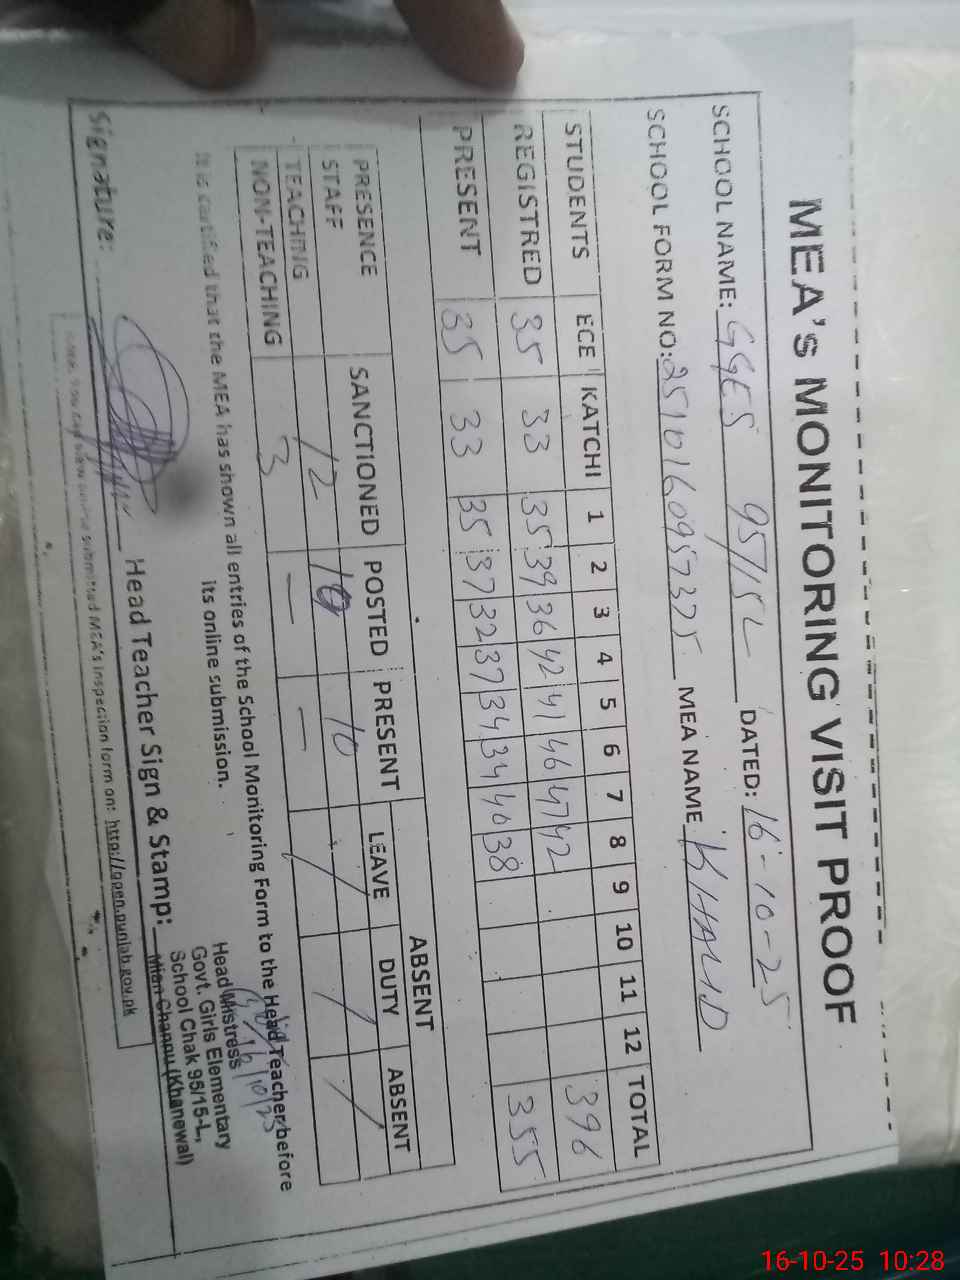 MEA's MONITORING VISIT PROOF
SCHOOL NAME: GGES 95/15L DATED: 16-10-25
SCHOOL FORM NO: 2510160957325 MEA NAME KHALID
STUDENTS ECE KATCHI 1 2 3 4 5 6 7 8 9 10 11 12 TOTAL
REGISTRED 35 33 35 39 36 42 41 46 47 42 396
PRESENT 35 33 35 37 32 37 34 34 40 38 355
PRESENCE SANCTIONED POSTED PRESENT ABSENT
STAFF LEAVE DUTY ABSENT
TEACHING 12 10 10 / / /
NON-TEACHING 3 — — /
It is certified that the MEA has shown all entries of the School Monitoring Form to the Head Teacher before
its online submission.
Signature: Head Teacher Sign & Stamp:
16/10/25
Head Mistress
Govt. Girls Elementary
School Chak 95/15-L,
Mian Channu (Khanewal)
you can view online submitted MEA's inspection form on: http://open.punjab.gov.pk
16-10-25 10:28